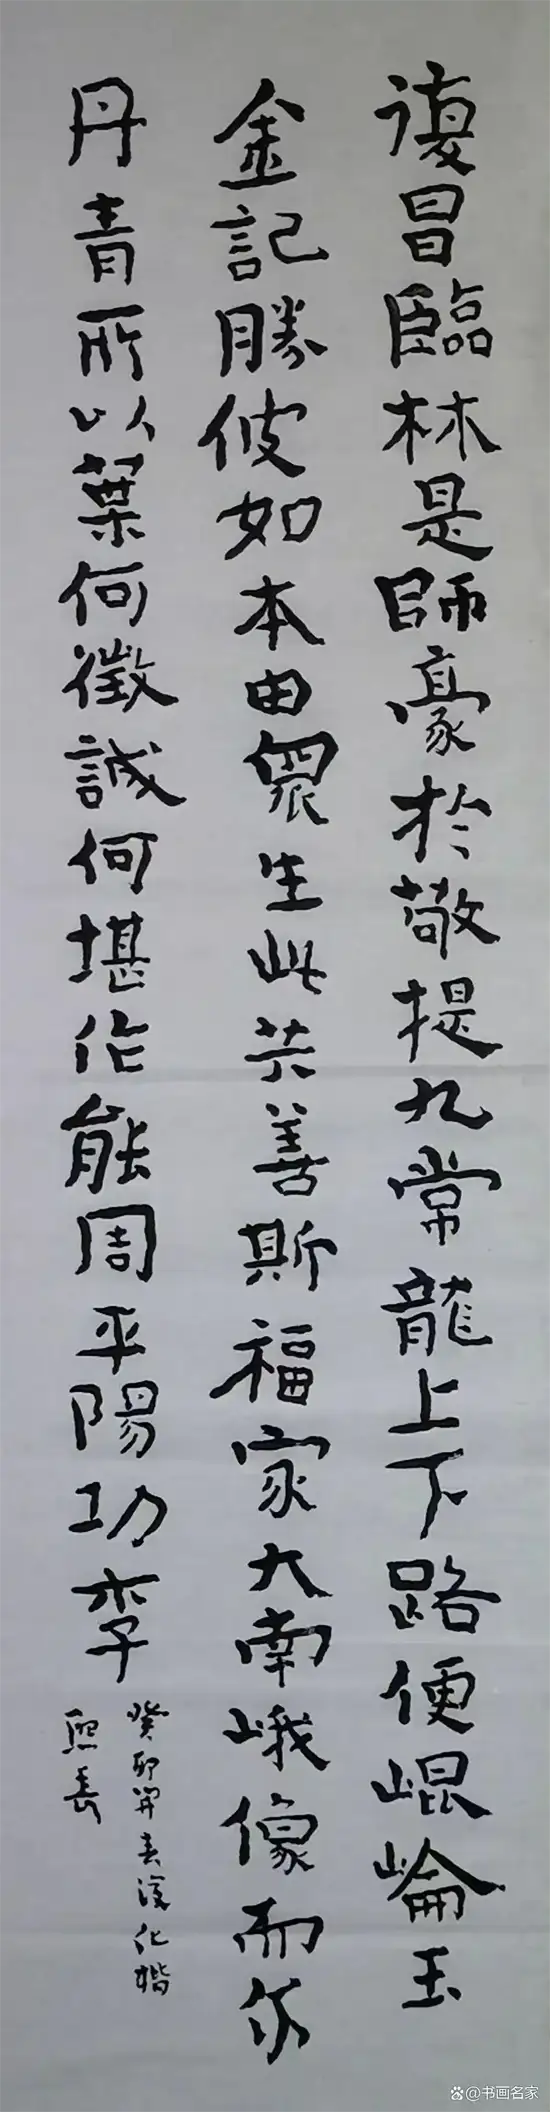 復昌臨林是師豪於敬提九常龍上下路便崐崘玉
金記勝彼如本由眾生此共善斯福家大南峨像而尔
丹青所以葉何徵誠何堪作能周平陽功李
癸卯年春淳化楷
熙長
@书画名家